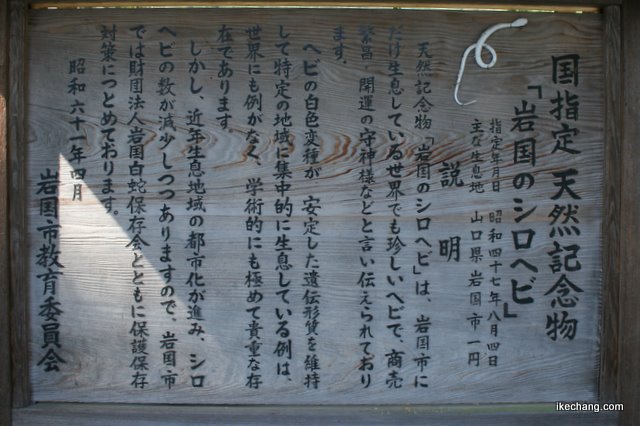 国指定 天然記念物
「岩国のシロヘビ」
指定年月日 昭和四十七年八月四日
主な生息地 山口県岩国市一円
説明
天然記念物「岩国のシロヘビ」は、岩国市に
だけ生息している世界でも珍しいヘビで、商売
繁昌・開運の守神様などと言い伝えられており
ます。
ヘビの白色変種が、安定した遺伝形質を維持
して特定の地域に集中的に生息している例は、
世界にも例がなく、学術的にも極めて貴重な存
在であります。
しかし、近年生息地域の都市化が進み、シロ
ヘビの数が減少しつつありますので、岩国市
では財団法人岩国白蛇保存会とともに保護保存
対策につとめております。
昭和六十一年四月
岩国市教育委員会
ikechang.com